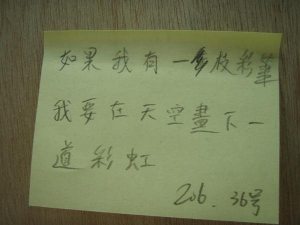 如果我有一多枝彩筆
我要在天空畫下一
道彩虹
206. 36号